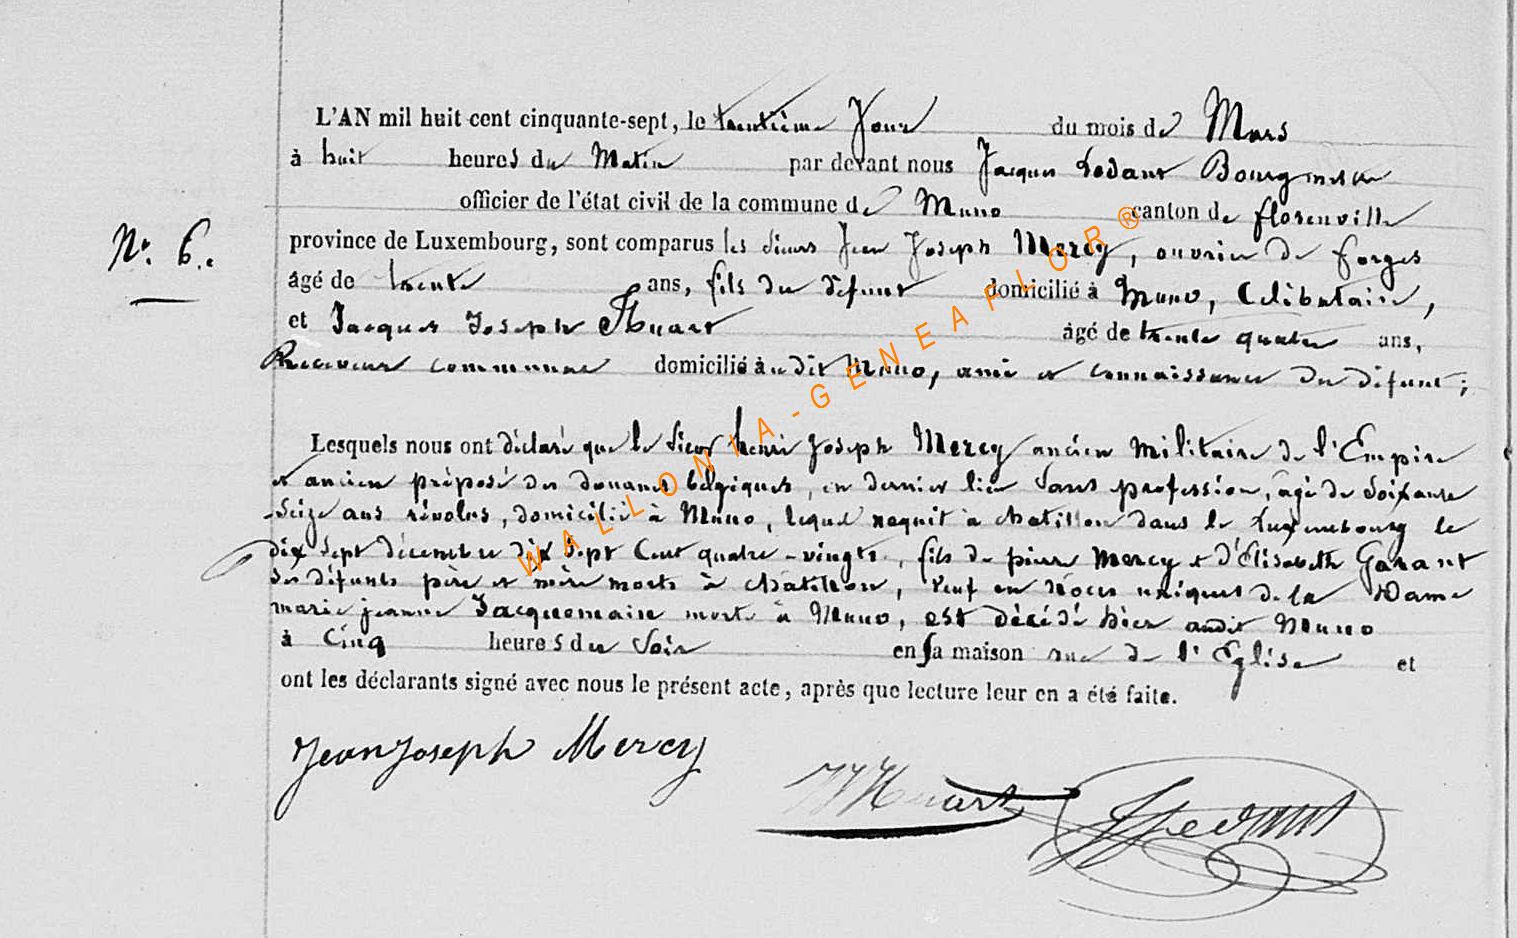 L'AN mil huit cent cinquante-sept, le trentième Jour du mois de Mars
à huit heures du Matin par devant nous Jacques Bourgmestre
officier de l'état civil de la commune de Muno canton de florenville
N° 6.
province de Luxembourg, sont comparus les Sieurs Jean Joseph Mercy, ouvrier de forges
âgé de trente ans, fils du défunt domicilié à Muno, Célibataire,
et Jacques Joseph Huart âgé de trente quatre ans,
Receveur communal domicilié audit Muno, ami et connaissance du défunt;
Lesquels nous ont déclaré que le Sieur henri Joseph Mercy ancien Militaire de l'Empire
et ancien préposé des douanes belgiques, en dernier lieu Sans profession, âgé de Soixante
-Seize ans révolus, domicilié à Muno, lequel naquit à chatillon dans le Luxembourg le
dix Sept décembre dix Sept Cent quatre-vingts, fils de pierre Mercy et d'Elisabeth Garant
des défunts père et mère morts à châtillon, Veuf en nôces uniques de la Dame
marie jeanne Jacquemain morte à Muno, est décédé hier audit Muno
à Cinq heures du Soir en sa maison rue de l'Eglise et
ont les déclarants signé avec nous le présent acte, après que lecture leur en a été faite.
Jean Joseph Mercy
JJHuart
WALLONIA-GENEAFLOR®